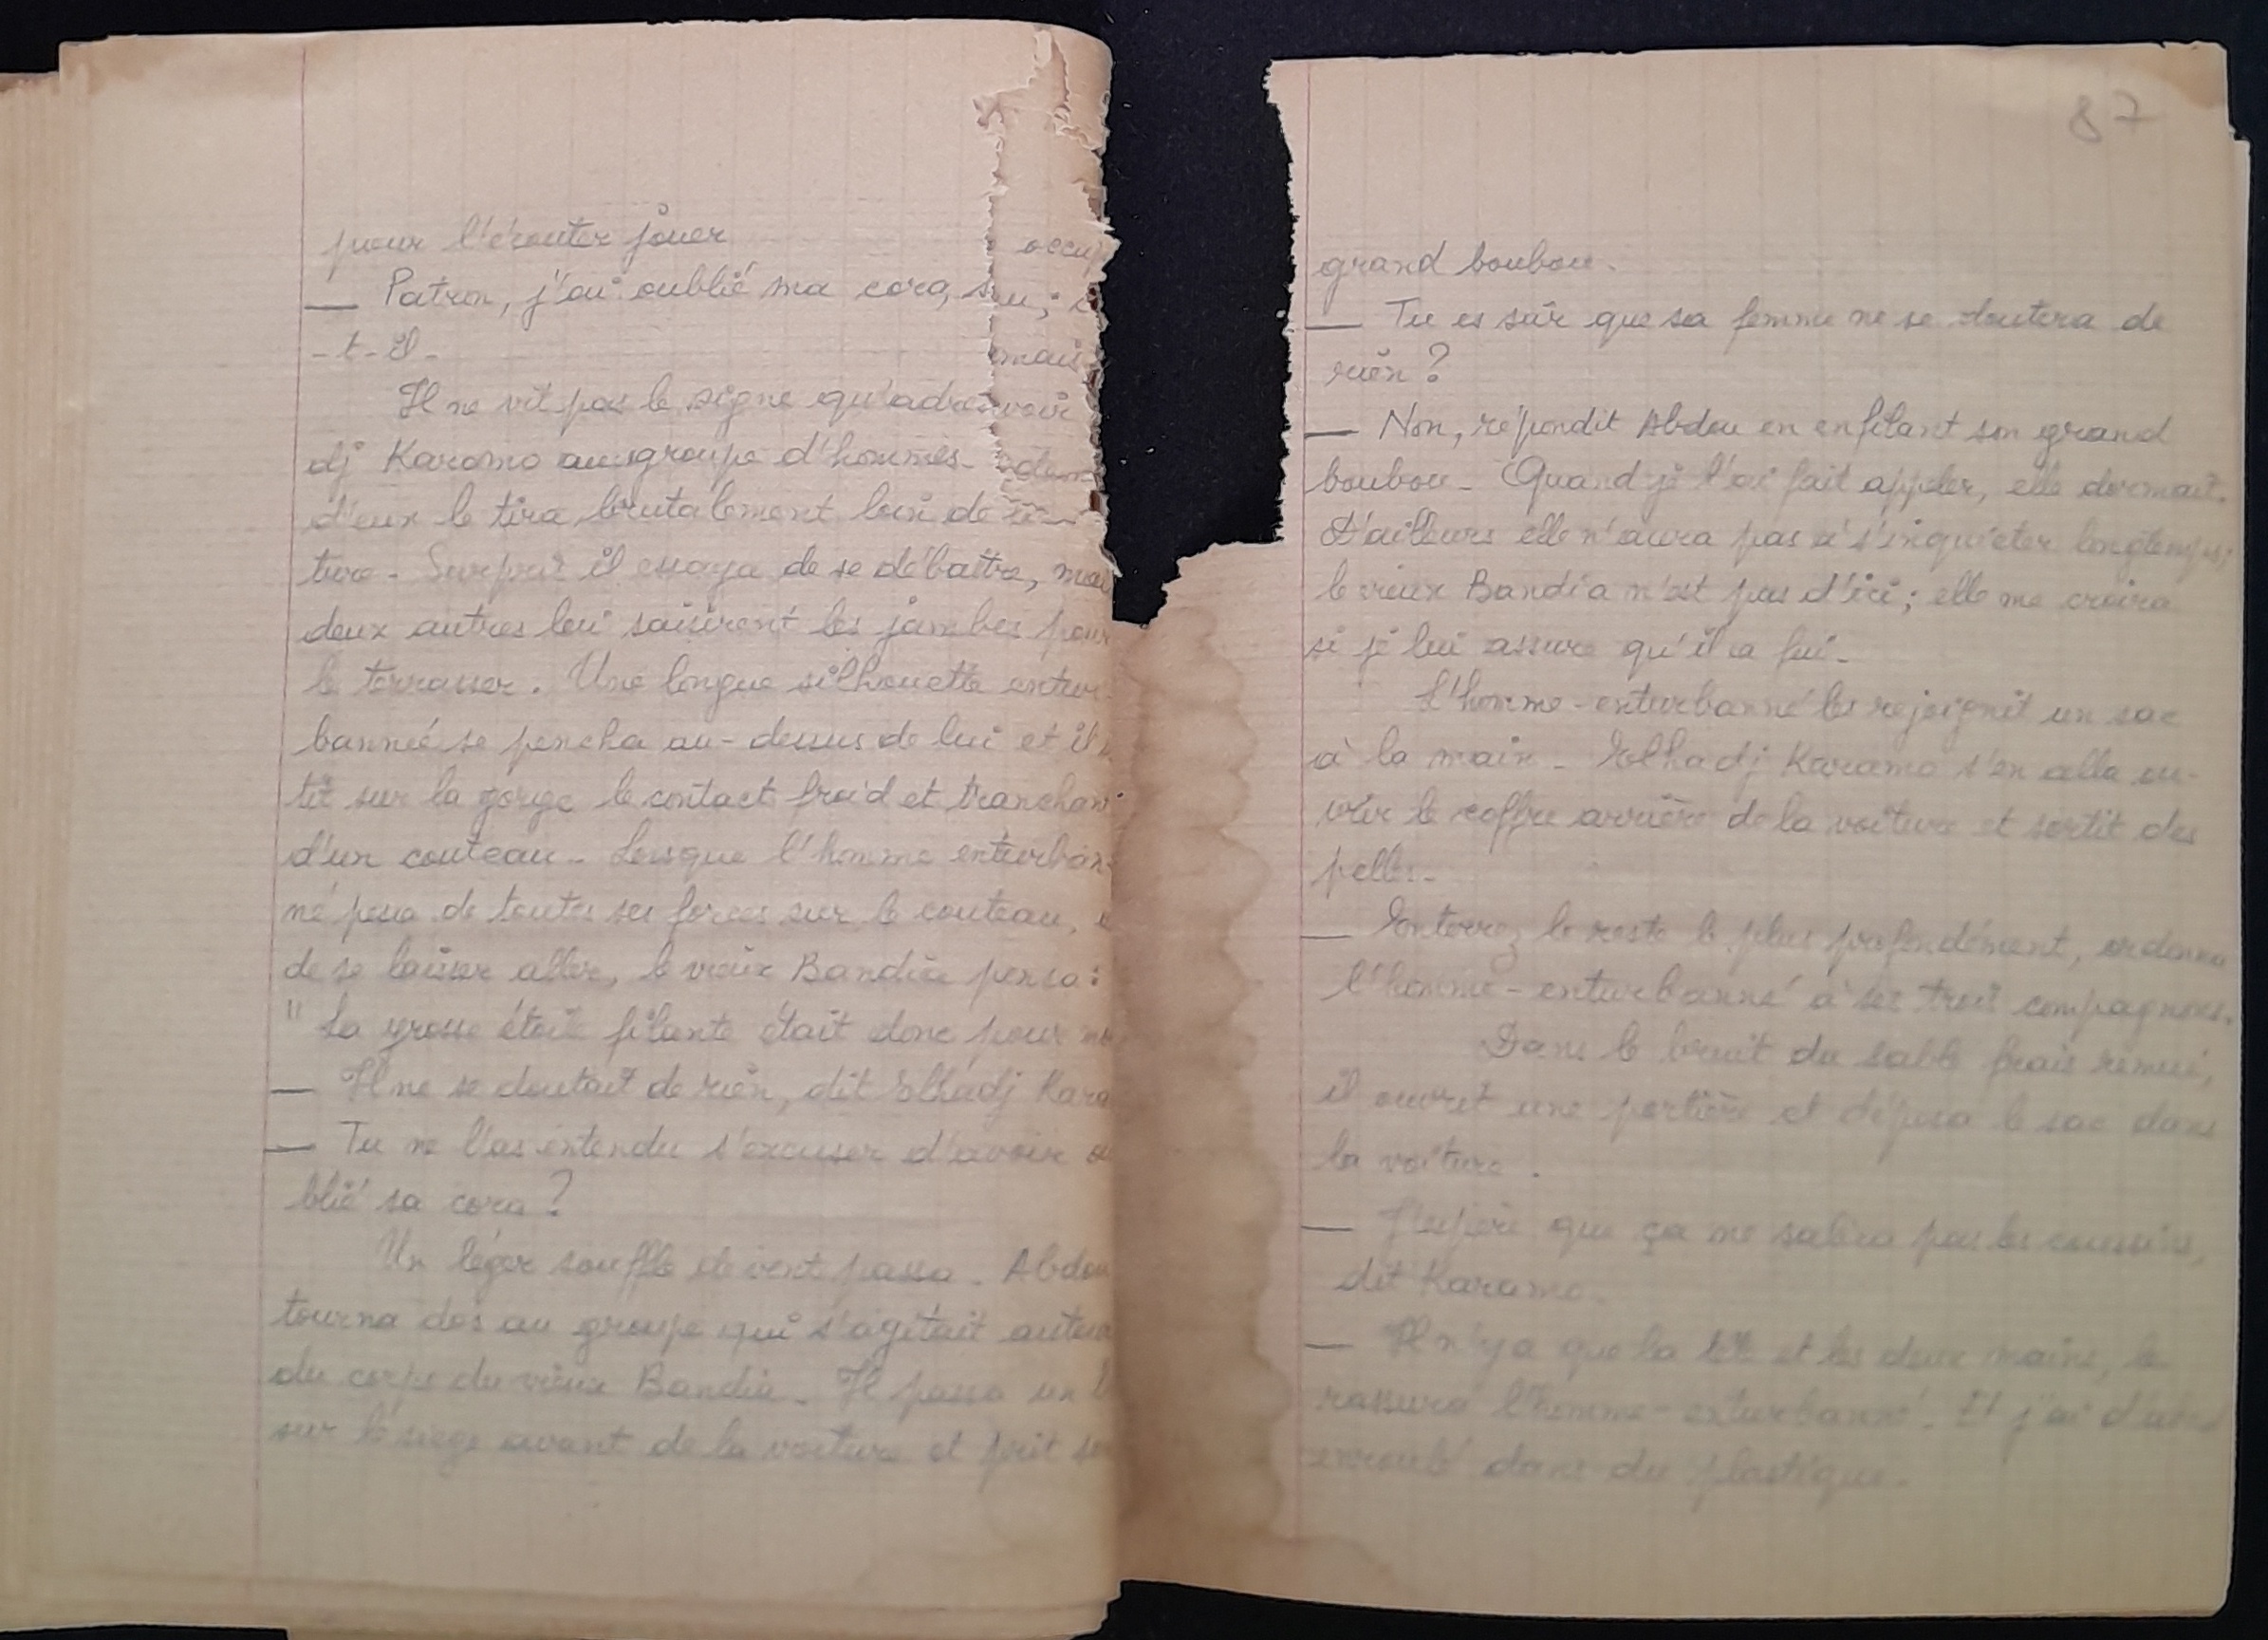 pour l'écouter jouer
— Patron, j'ai oublié ma cora, s
-t-il-
Il ne vit pas le signe qu'adres
dj Karamo au groupe d'hommes-
d'eux le tira brutalement loin de
ture- Surpris il essaya de se débattre, mai
deux autres lui saisirent les jambes pour
le terrasser. Une longue silhouette entur-
bannée se pencha au-dessus de lui et il
tit sur la gorge le contact froid et tranchant
d'un couteau- Lorsque l'homme enturban-
né pesa de toutes ses forces sur le couteau,
de se laisser aller, le vieux Bandia pensa:
"La grosse étoile filante était donc pour
— Il ne se doutait de rien, dit Elhadj Kara
— Tu ne l'as entendu s'excuser d'avoir ou
blié sa cora?
Un léger souffle de vent passa- Abdou
tourna dos au groupe qui s'agitait autour
du corps du vieux Bandia- Il passa un
sur le siège avant de la voiture et prit so
occup
mais
voir
87
grand boubou-
— Tu es sûr que sa femme ne se doutera de
rien?
— Non, répondit Abdou en enfilant son grand
boubou- Quand je l'ai fait appeler, elle dormait.
D'ailleurs elle n'aura pas à s'inquiéter longtemps;
le vieux Bandia n'est pas d'ici; elle me croira
si je lui assure qu'il a fui-
L'homme-enturbanné les rejoignit un sac
à la main- Elhadj Karamo s'en alla ou-
vrir le coffre arrière de la voiture et sortit des
pelles-
— Enterrez le reste le plus profondément, ordonna
l'homme-enturbanné à ses trois compagnons.
Dans le bruit du sable frais remué,
il ouvrit une portière et déposa le sac dans
la voiture.
— J'espère que ça ne salira pas les coussins,
dit Karamo-
— Il n'y a que la tête et les deux mains, le
rassura l'homme-enturbanné- Et j'ai
enroulé dans du plastique-